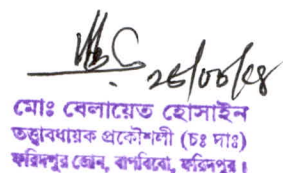 ২৫/০৮/২৪
মোঃ বেলায়েত হোসাইন
তত্ত্বাবধায়ক প্রকৌশলী (চঃ দাঃ)
ফরিদপুর জোন, বাপবিবো, ফরিদপুর।